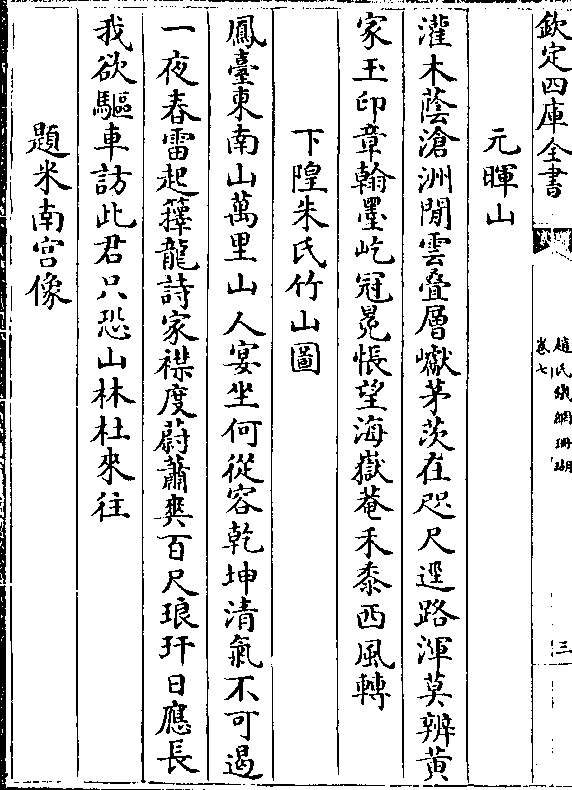 欽定四庫全書
趙氏鐵網珊瑚
卷七
三
元暉山
灌木蔭滄洲閒雲疊層巘茅茨在咫尺逕路渾莫辨黄
家玉印章翰墨屹冠冕悵望海嶽菴禾黍西風轉
下隍朱氏竹山圖
鳳臺東南山萬里山人宴坐何從容乾坤清氣不可遏
一夜春雷起籜龍詩家襟度蔚蕭爽百尺琅玕日應長
我欲驅車訪此君只恐山林杜來往
題米南宫像